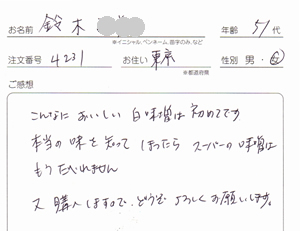 お名前 鈴木
※イニシャル、ペンネーム、苗字のみ、など
年齢 51 代
注文番号 4231
お住い 東京
※都道府県
性別 男・女
ご感想
こんなにおいしい白味噌は初めてです
本当の味を知ってしまったら スーパーの味噌は
もうたべれません
又購入しますので、どうぞよろしくお願いします。